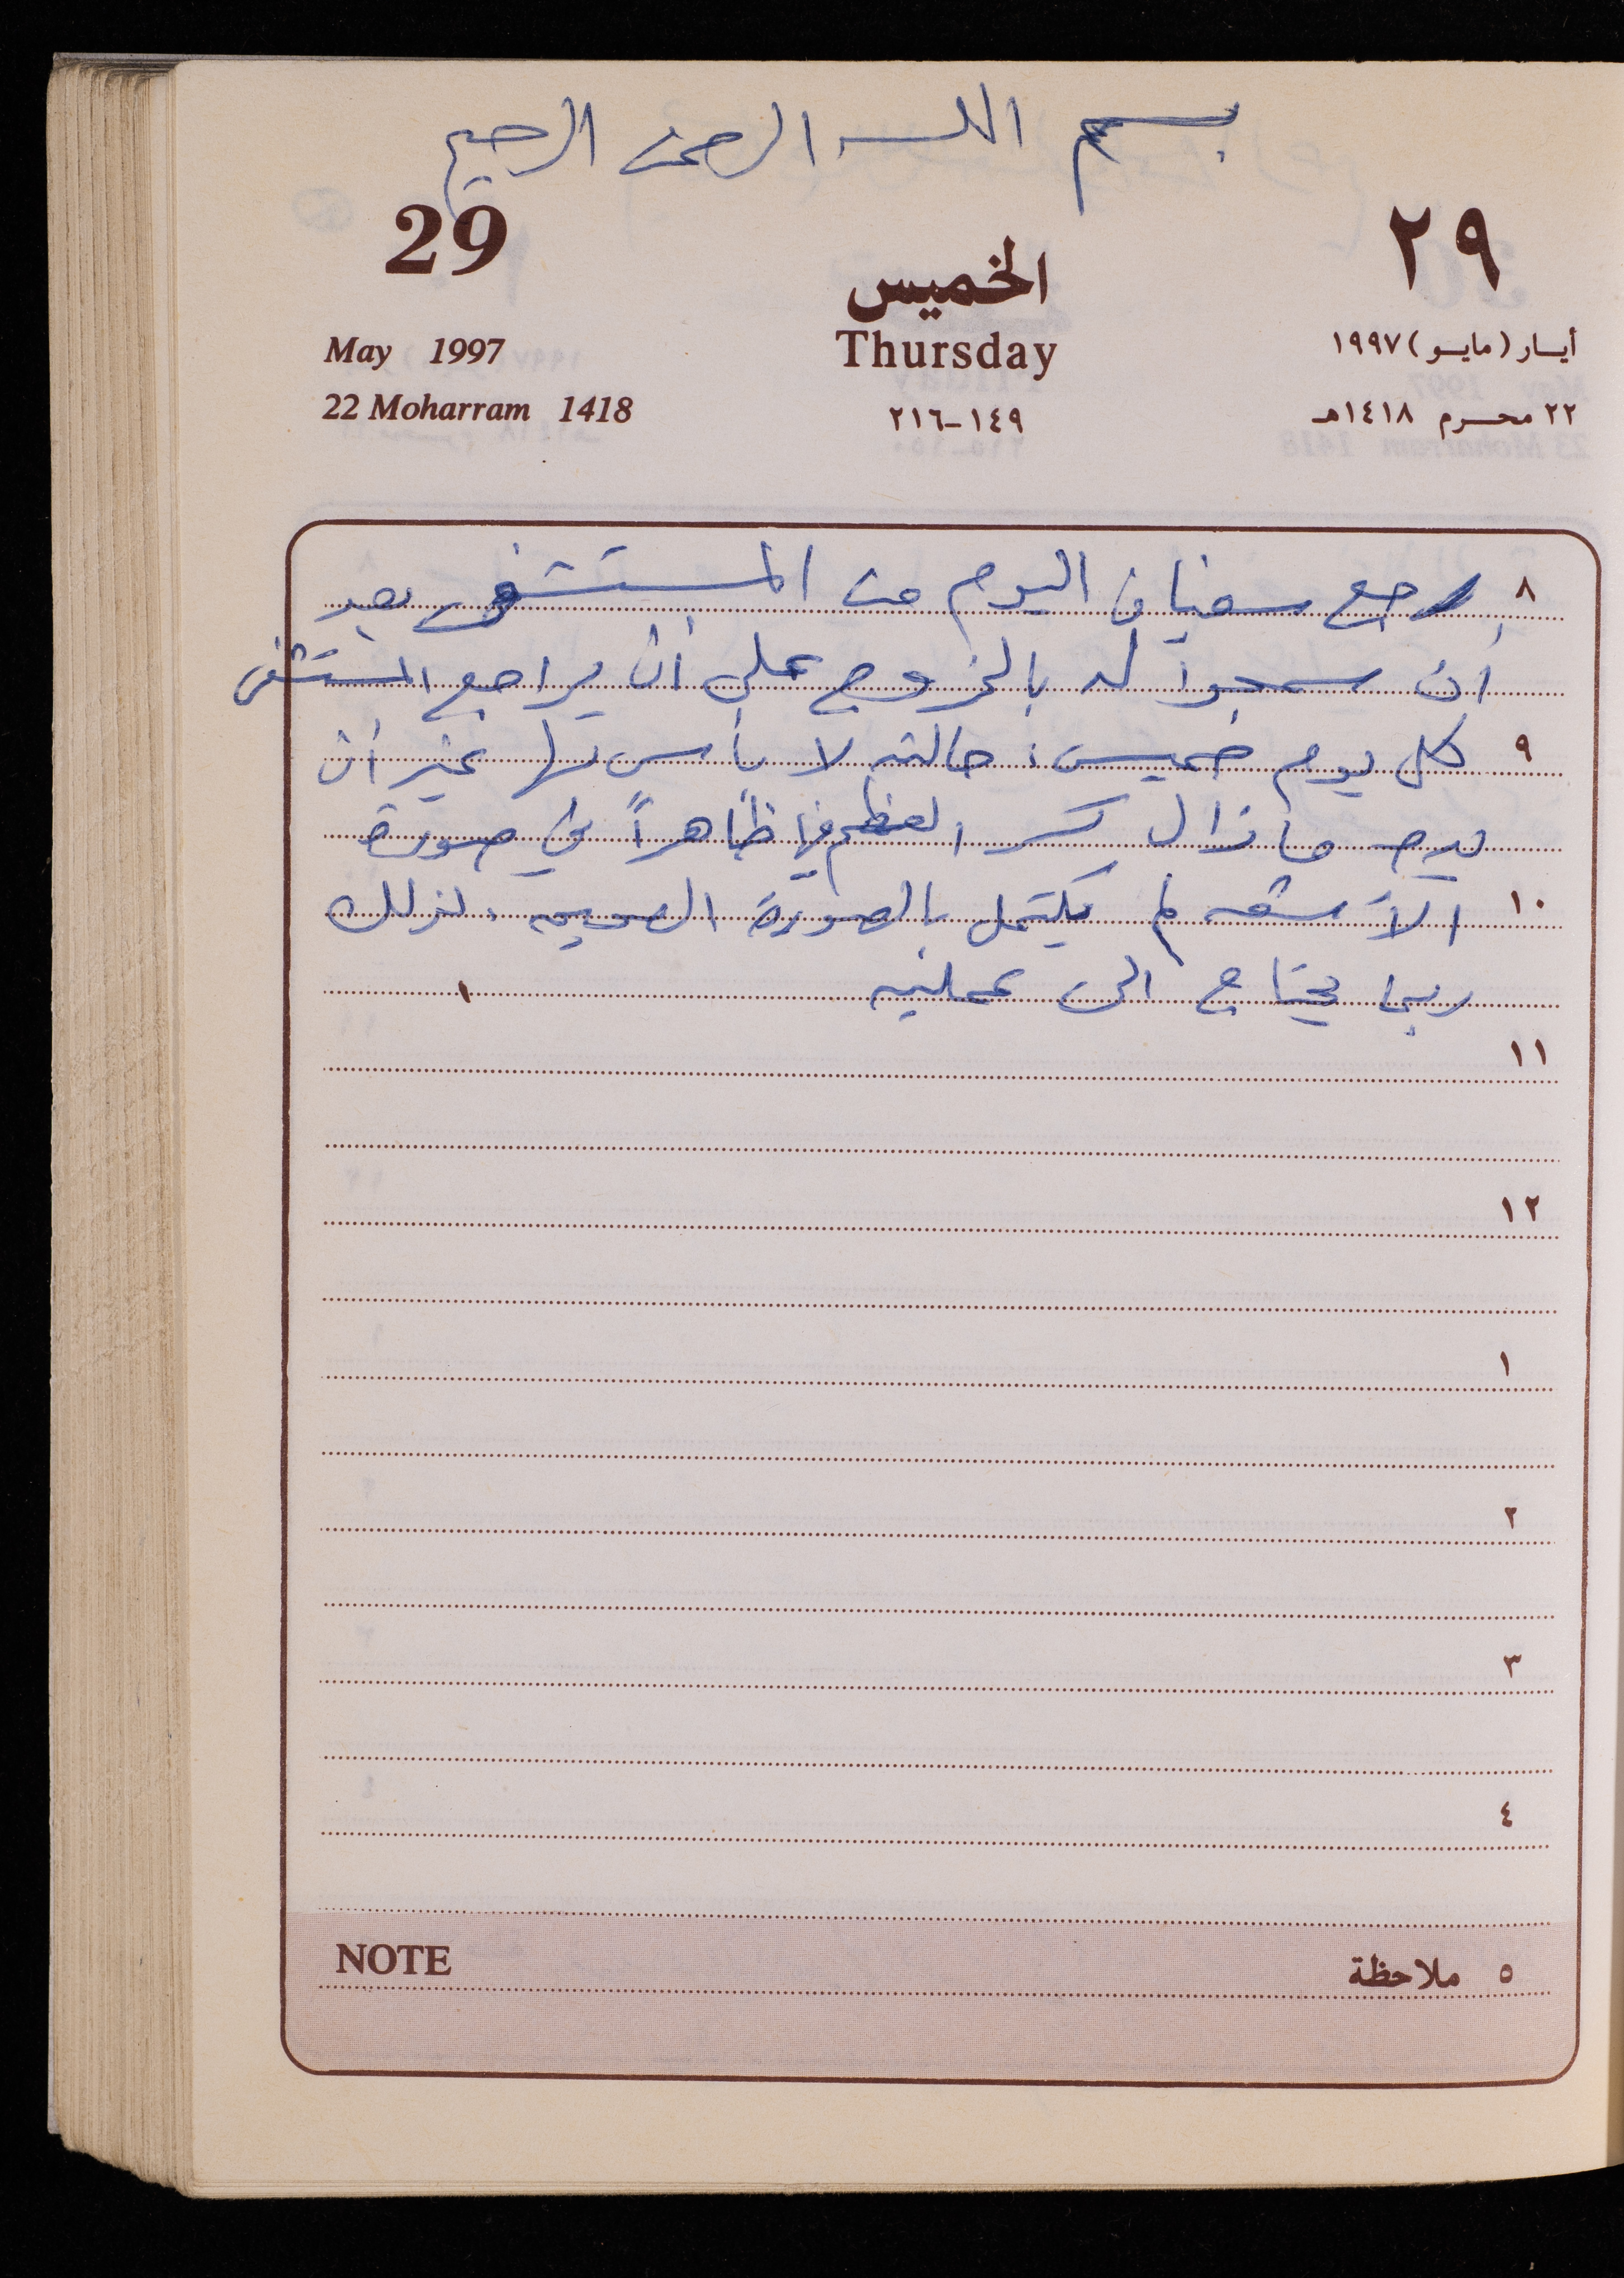 بسم الله الرحمن الرحيم
29 الخميس ٢٩
May 1997 Thursday أيـار (مايـو) ١٩٩٧
22 Moharram 1418 ١٤٩-٢١٦ ٢٢ محـرم ١٤١٨هـ
٨ رجع سفيان اليوم من المستشفى بعد
أن سمحوا له بالخروج على أن يراجع المستشفى
٩ كل يوم خميس، حالته لا بأس بها غير أن
يده ما زال كسر العظم فيها ظاهراً في صورة
١٠ الأشعة لم يكتمل بالصورة الصحيحه، لذلك
ربما يحتاج الى عمليه
١١
١٢
١
٢
٣
٤
٥ ملاحظة NOTE